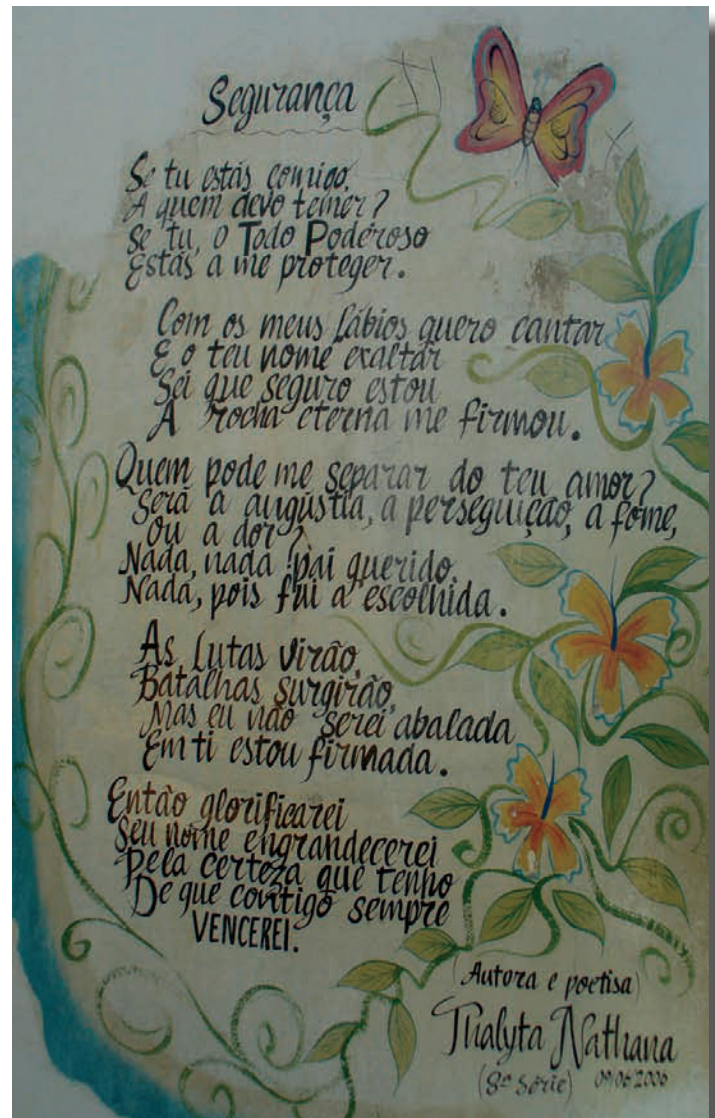 Segurança
Se tu estás comigo,
A quem devo temer?
Se tu, o Todo Poderoso
Estás a me proteger.
Com os meus lábios quero cantar
E o teu nome exaltar
Sei que seguro estou
A rocha eterna me firmou.
Quem pode me separar do teu amor?
Será a angústia, a perseguição, a fome,
Ou a dor?
Nada, nada pai querido,
Nada, pois fui a escolhida.
As lutas virão,
Batalhas surgirão,
Mas eu não serei abalada
Em ti estou firmada.
Então glorificarei
Seu nome engrandecerei
Pela certeza que tenho
De que contigo sempre
VENCEREI.
(Autora e poetisa)
Thalyta Nathana
(8ª série) 09/06/2006